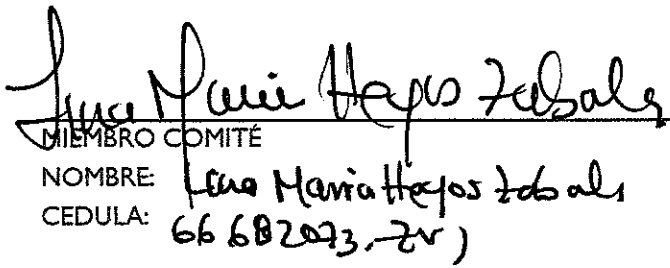 Maria Hoyos Zabala
MIEMBRO COMITÉ
NOMBRE: Maria Hoyos Zabala
CEDULA: 66.682073